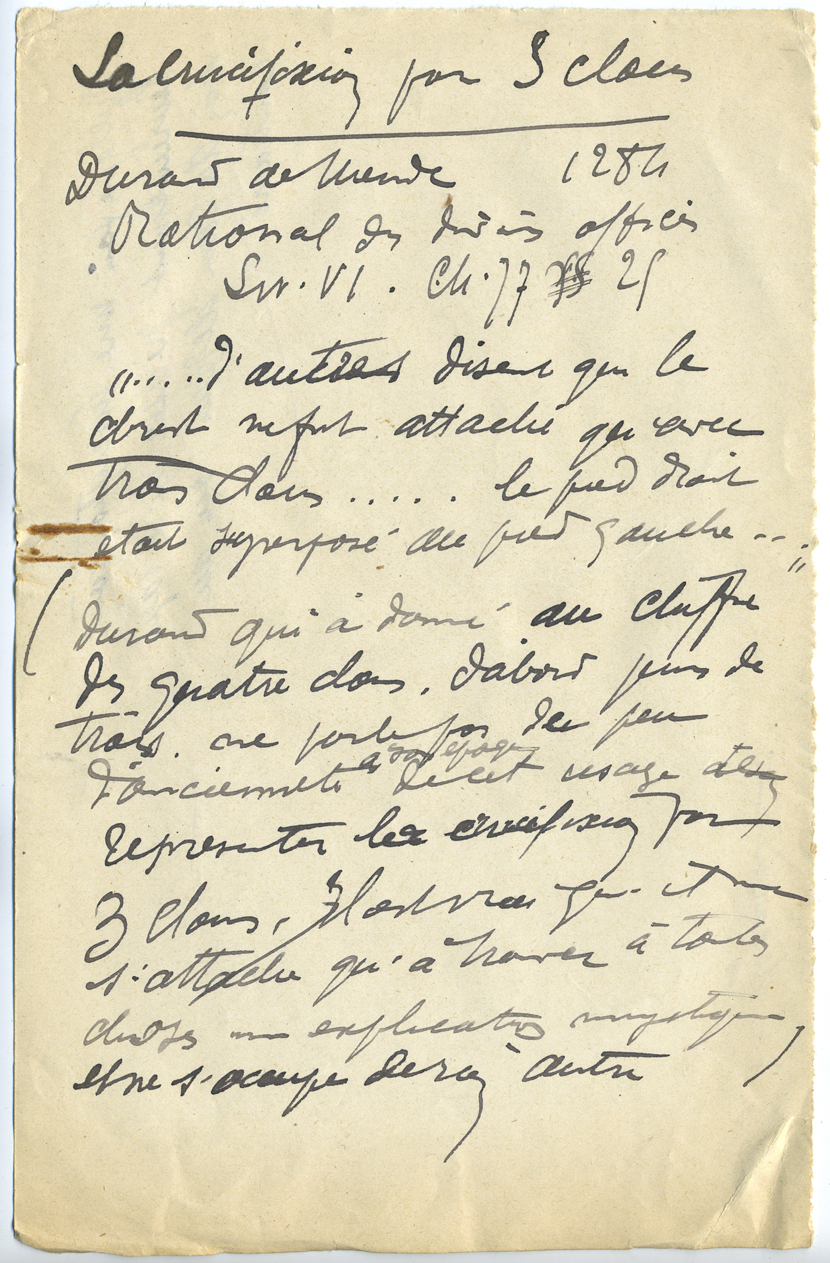 La Crucifixion par 3 clous
Durand de Mende 1284
Rational des divins offices
Liv. VI. Ch. 77 25
"..... d'autres disent que le
christ ne fut attaché qu'avec
trois clous ..... le pied droit
était superposé au pied gauche ... "
(Durand qui a donné au chiffre
des quatre clous, d'abord puis de
trois, ne parle pas du peu
d'ancienneté à son époque de cet usage de
représenter la crucifixion par
3 clous, Il est vrai qu'il ne
s'attache qu'à trouver à toutes
choses une explication mystique
et ne s'occupe de rien autre )